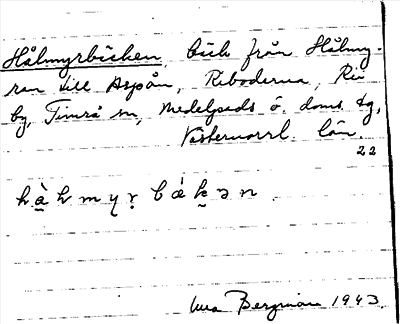 Hålmyrbäcken, bäck från Hålmy-
ran till Aspån, Riboderna, Ri
by, Timrå sn, Medelpads ö. doms. tg,
Västernorrl. län.
22
hàḷmyṛbǽḵən
Bergman 1943